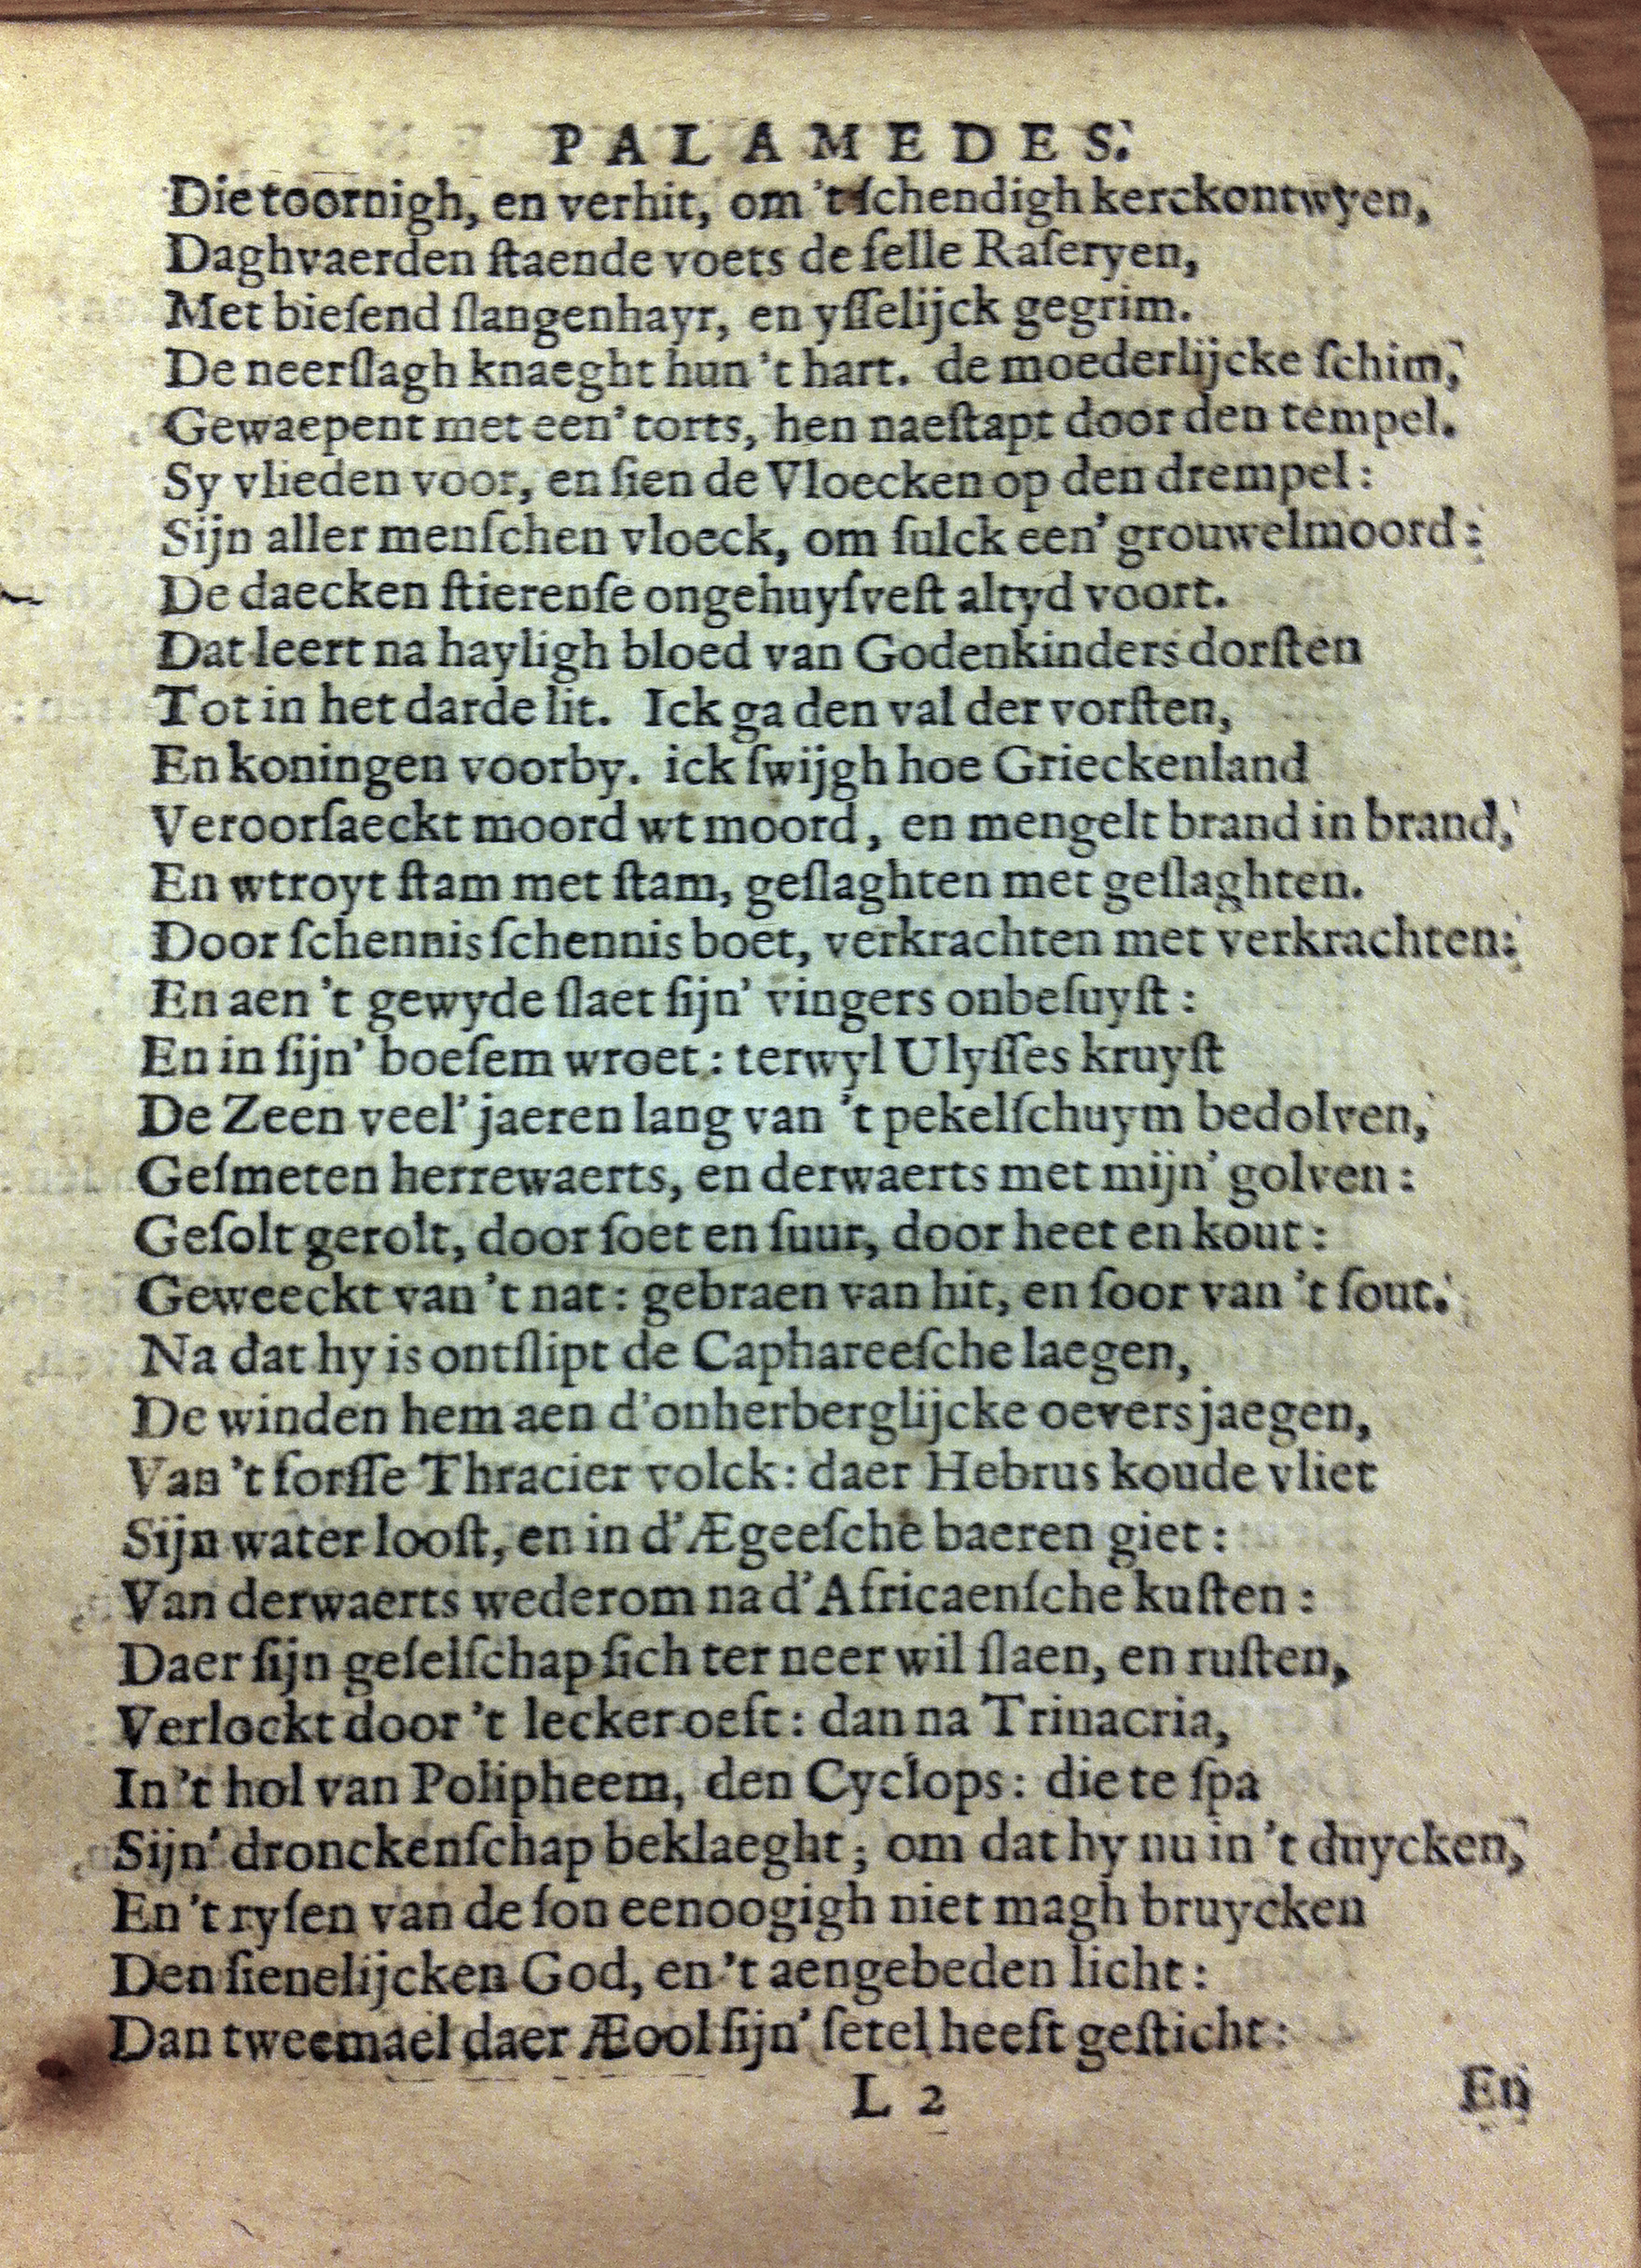 PALAMEDES.
Die toornigh, en verhit, om 't ſchendigh kerckontwyen,
Daghvaerden ſtaende voets de felle Raſeryen,
Met bieſend ſlangenhayr, en yſſelijck gegrim.
De neerſlagh knaeght hun 't hart. de moederlijcke ſchim,
Gewaepent met een' torts, hen naeſtapt door den tempel.
Sy vlieden voor, en ſien de Vloecken op den drempel:
Sijn aller menſchen vloeck, om ſulck een' grouwelmoord:
De daecken ſtierenſe ongehuyſveſt altyd voort.
Dat leert na hayligh bloed van Godenkinders dorſten
Tot in het darde lit. Ick ga den val der vorſten,
En koningen voorby. ick ſwijgh hoe Grieckenland
Veroorſaeckt moord wt moord, en mengelt brand in brand,
En wtroyt ſtam met ſtam, geſlaghten met geſlaghten.
Door ſchennis ſchennis boet, verkrachten met verkrachten:
En aen 't gewyde ſlaet ſijn' vingers onbeſuyſt:
En in ſijn' boeſem wroet: terwyl Ulyſſes kruyſt
De Zeen veel' jaeren lang van 't pekelſchuym bedolven,
Geſmeten herrewaerts, en derwaerts met mijn' golven:
Geſolt gerolt, door ſoet en ſuur, door heet en kout:
Geweeckt van 't nat: gebraen van hit, en ſoor van 't ſout.
Na dat hy is ontſlipt de Caphareeſche laegen,
De winden hem aen d'onherberglijcke oevers jaegen,
Van 't forſſe Thracier volck: daer Hebrus koude vliet
Sijn water looſt, en in d'Ægeeſche baeren giet:
Van derwaerts wederom na d'Africaenſche kuſten:
Daer ſijn geſelſchap ſich ter neer wil ſlaen, en ruſten,
Verlockt door 't lecker oeft: dan na Trinacria,
In 't hol van Polipheem, den Cyclops: die te ſpa
Sijn' dronckenſchap beklaeght; om dat hy nu in 't duycken,
En 't ryſen van de ſon eenoogigh niet magh bruycken
Den ſienelijcken God, en 't aengebeden licht:
Dan tweemael daer Æool ſijn' ſetel heeft geſticht:
L 2
En